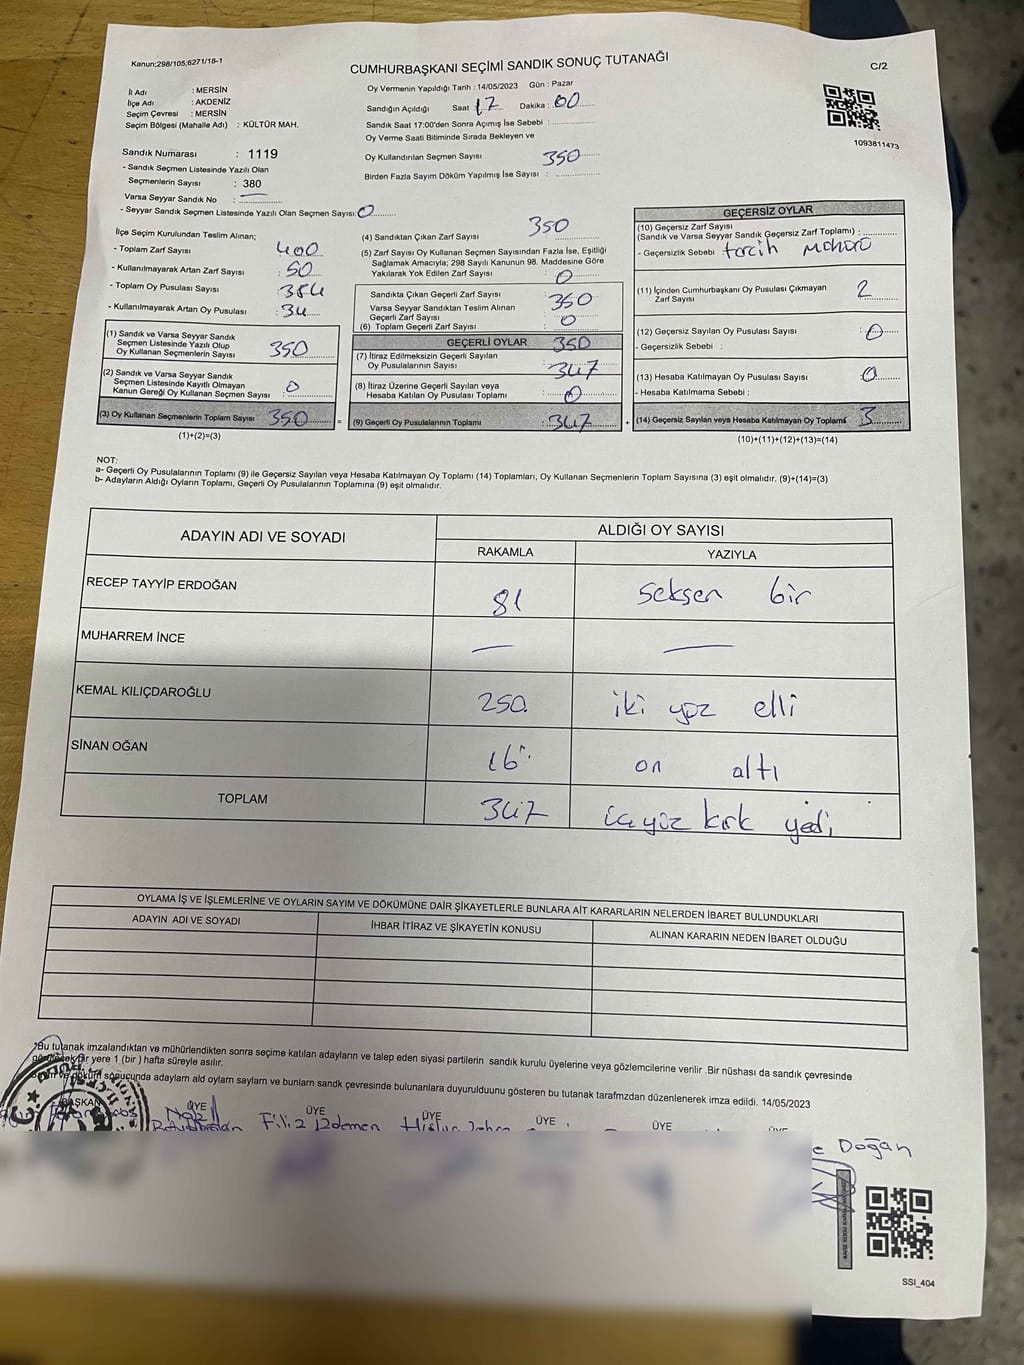 Kanun;298/105,6271/18-1
CUMHURBAŞKANI SEÇİMİ SANDIK SONUÇ TUTANAĞI
C/2
İl Adı : MERSİN
İlçe Adı : AKDENİZ
Seçim Çevresi : MERSİN
Seçim Bölgesi (Mahalle Adı) : KÜLTÜR MAH.
Oy Vermenin Yapıldığı Tarih : 14/05/2023 Gün : Pazar
Sandığın Açıldığı Saat 17 Dakika : 00
Sandık Saat 17:00'den Sonra Açımış İse Sebebi :
Oy Verme Saati Bitiminde Sırada Bekleyen ve
Oy Kullandırılan Seçmen Sayısı 350
Birden Fazla Sayım Döküm Yapılmış İse Sayısı :
1093811473
Sandık Numarası : 1119
- Sandık Seçmen Listesinde Yazılı Olan
Seçmenlerin Sayısı : 380
Varsa Seyyar Sandık No :
- Seyyar Sandık Seçmen Listesinde Yazılı Olan Seçmen Sayısı: 0
İlçe Seçim Kurulundan Teslim Alınan;
- Toplam Zarf Sayısı : 400
- Kullanılmayarak Artan Zarf Sayısı : 50
- Toplam Oy Pusulası Sayısı : 384
- Kullanılmayarak Artan Oy Pusulası : 34
(1) Sandık ve Varsa Seyyar Sandık
Seçmen Listesinde Yazılı Olup
Oy Kullanan Seçmenlerin Sayısı 350
(2) Sandık ve Varsa Seyyar Sandık
Seçmen Listesinde Kayıtlı Olmayan
Kanun Gereği Oy Kullanan Seçmen Sayısı : 0
(3) Oy Kullanan Seçmenlerin Toplam Sayısı 350 =
(1)+(2)=(3)
(4) Sandıktan Çıkan Zarf Sayısı 350
(5) Zarf Sayısı Oy Kullanan Seçmen Sayısından Fazla İse, Eşitliği
Sağlamak Amacıyla; 298 Sayılı Kanunun 98. Maddesine Göre
Yakılarak Yok Edilen Zarf Sayısı : 0
Sandıkta Çıkan Geçerli Zarf Sayısı : 350
Varsa Seyyar Sandıktan Teslim Alınan
Geçerli Zarf Sayısı : 0
(6) Toplam Geçerli Zarf Sayısı :
GEÇERLİ OYLAR 350
(7) İtiraz Edilmeksizin Geçerli Sayılan
Oy Pusulalarının Sayısı : 347
(8) İtiraz Üzerine Geçerli Sayılan veya
Hesaba Katılan Oy Pusulası Toplamı : 0
(9) Geçerli Oy Pusulalarının Toplamı : 347 +
GEÇERSİZ OYLAR
(10) Geçersiz Zarf Sayısı
(Sandık ve Varsa Seyyar Sandık Geçersiz Zarf Toplamı) :
- Geçersizlik Sebebi : tercih mührü
(11) İçinden Cumhurbaşkanı Oy Pusulası Çıkmayan
Zarf Sayısı 2
(12) Geçersiz Sayılan Oy Pusulası Sayısı : 0
- Geçersizlik Sebebi :
(13) Hesaba Katılmayan Oy Pusulası Sayısı : 0
- Hesaba Katılmama Sebebi :
(14) Geçersiz Sayılan veya Hesaba Katılmayan Oy Toplamı : 3
(10)+(11)+(12)+(13)=(14)
NOT:
a- Geçerli Oy Pusulalarının Toplamı (9) ile Geçersiz Sayılan veya Hesaba Katılmayan Oy Toplamı (14) Toplamları, Oy Kullanan Seçmenlerin Toplam Sayısına (3) eşit olmalıdır. (9)+(14)=(3)
b- Adayların Aldığı Oyların Toplamı, Geçerli Oy Pusulalarının Toplamına (9) eşit olmalıdır.
ADAYIN ADI VE SOYADI
ALDIĞI OY SAYISI
RAKAMLA YAZIYLA
RECEP TAYYİP ERDOĞAN 81 seksen bir
MUHARREM İNCE — —
KEMAL KILIÇDAROĞLU 250. iki yüz elli
SİNAN OĞAN 16 on altı
TOPLAM 347 üçyüz kırk yedi
OYLAMA İŞ VE İŞLEMLERİNE VE OYLARIN SAYIM VE DÖKÜMÜNE DAİR ŞİKAYETLERLE BUNLARA AİT KARARLARIN NELERDEN İBARET BULUNDUKLARI
ADAYIN ADI VE SOYADI İHBAR İTİRAZ VE ŞİKAYETİN KONUSU ALINAN KARARIN NEDEN İBARET OLDUĞU
*Bu tutanak imzalandıktan ve mühürlendikten sonra seçime katılan adayların ve talep eden siyasi partilerin sandık kurulu üyelerine veya gözlemcilerine verilir .Bir nüshası da sandık çevresinde
görülecek bir yere 1 (bir ) hafta süreyle asılır.
döküm sonucunda adaylam ald oylam saylam ve bunlarm sandk çevresinde bulunanlara duyurulduunu gösteren bu tutanak tarafmzdan düzenlenerek imza edildi. 14/05/2023
BAŞKAN ÜYE ÜYE ÜYE ÜYE ÜYE
Filiz
Doğan
SSI_404